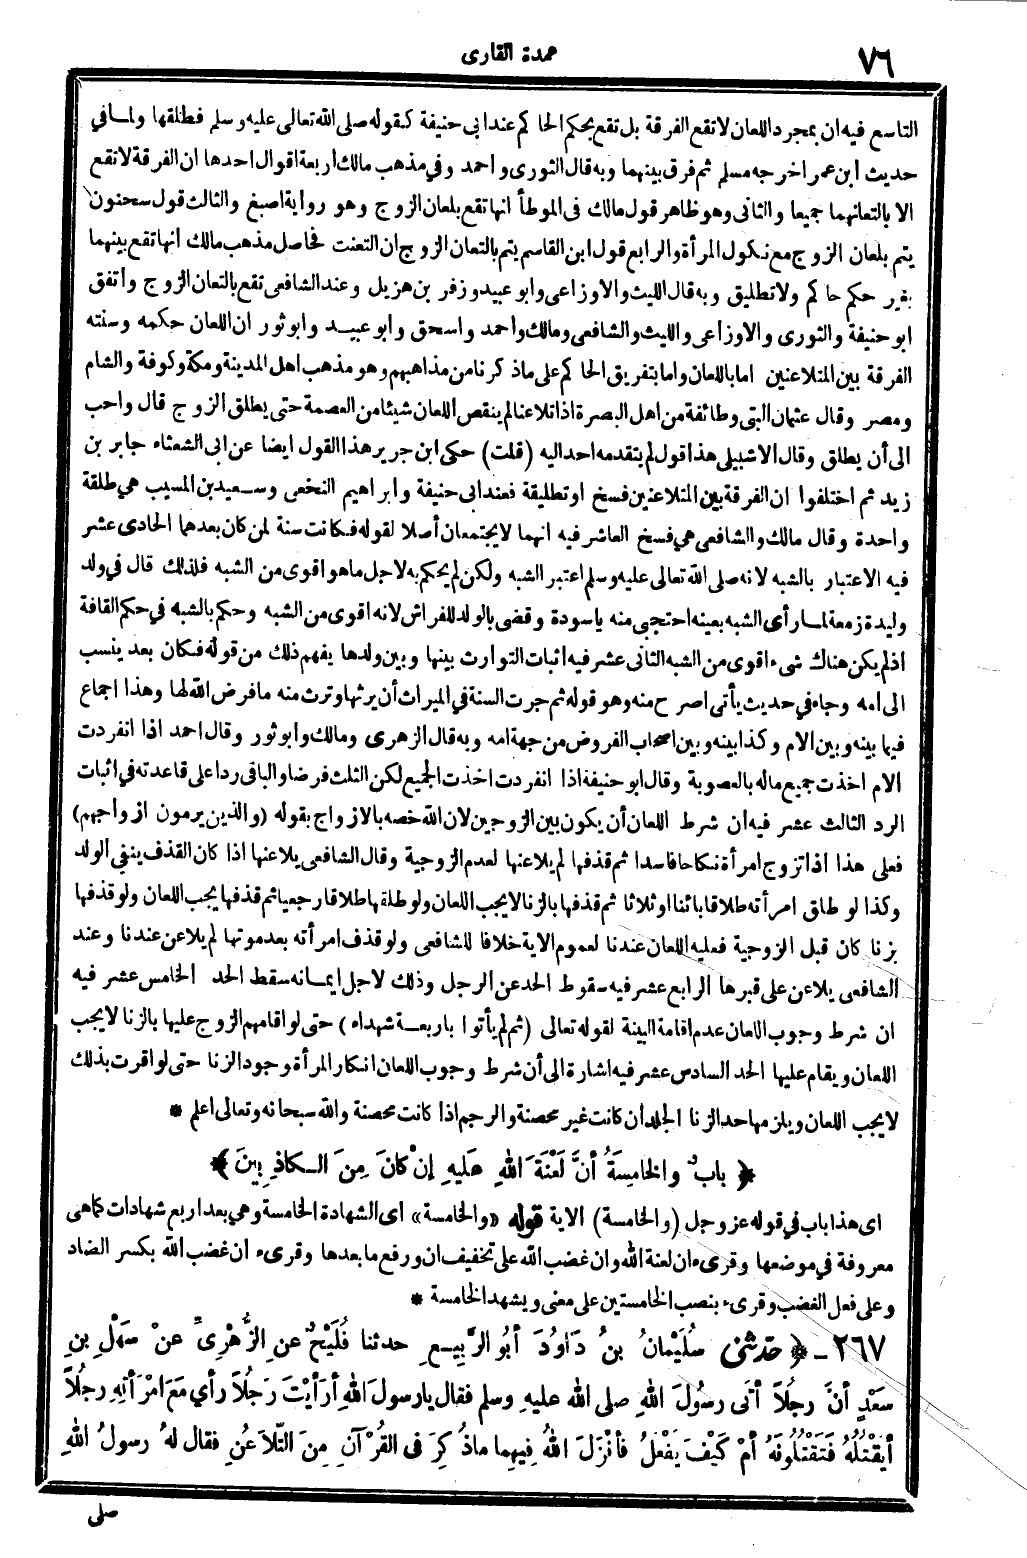 ٧٦
عمدة القارى
التاسع فيه ان بمجرد اللعان لا تقع الفرقة بل تقع بحكم الحاكم عند ابى حنيفة كقوله صلى الله تعالى عليه وسلم فطلقها ولما في
حديث ابن عمر اخرجه مسلم ثم فرق بينهما وبه قال الثورى واحمد وفي مذهب مالك اربعة اقوال احدها ان الفرقة لا تقع
الا بالتعانهما جميعا والثانى وهو ظاهر قول مالك فى الموطأ انها تقع بلعان الزوج وهو رواية اصبغ والثالث قول سحنون
يتم بلعان الزوج مع نكول المرأة والرابع قول ابن القاسم يتم بالتعان الزوج ان التعنت فحاصل مذهب مالك انها تقع بينهما
بغير حكم حاكم ولا تطليق وبه قال الليث والاوزاعى وابو عبيد وزفر بن هزيل وعند الشافعى تقع بالتعان الزوج واتفق
ابو حنيفة والثورى والاوزاعى والليث والشافعى ومالك واحمد واسحق وابو عبيد وابو ثور ان اللعان حكمه وسنته
الفرقة بين المتلاعنين اما باللعان واما بتفريق الحاكم على ماذكرنا من مذاهبهم وهو مذهب اهل المدينة ومكة وكوفة والشام
ومصر وقال عثمان البتى وطائفة من اهل البصرة اذا تلاعنا لم ينقص اللعان شيئا من العصمة حتى يطلق الزوج قال واحب
الى أن يطلق وقال الاشبيلى هذا قول لم يتقدمه احد اليه (قلت) حكى ابن جرير هذا القول ايضا عن ابى الشعثاء جابر بن
زيد ثم اختلفوا ان الفرقة بين المتلاعنين فسخ او تطليقة فعند ابى حنيفة وابراهيم النخعى وسعيد بن المسيب هي طلقة
واحدة وقال مالك والشافعى هي فسخ العاشر فيه انهما لا يجتمعان أصلا لقوله فكانت سنة لمن كان بعدهما الحادى عشر
فيه الاعتبار بالشبه لانه صلى الله تعالى عليه وسلم اعتبر الشبه ولكن لم يحكم به لاجل ماهو اقوى من الشبه فلذلك قال في ولد
وليدة زمعة لما رأى الشبه بعينه احتجبى منه ياسودة وقضى بالولد للفراش لانه اقوى من الشبه وحكم بالشبه في حكم القافة
اذ لم يكن هناك شىء اقوى من الشبه الثانى عشر فيه اثبات التوارث بينها وبين ولدها يفهم ذلك من قوله فكان بعد ينسب
الى امه وجاء في حديث يأتى اصرح منه وهو قوله ثم جرت السنة في الميراث أن يرثها وترث منه مافرض الله لها وهذا اجماع
فيما بينه وبين الام وكذا بينه وبين اصحاب الفروض من جهة امه وبه قال الزهرى ومالك وابو ثور وقال احمد اذا انفردت
الام اخذت جميع ماله بالعصوبة وقال ابو حنيفة اذا انفردت اخذت الجميع لكن الثلث فرضا والباقى ردا على قاعدته في اثبات
الرد الثالث عشر فيه ان شرط اللعان أن يكون بين الزوجين لان الله خصه بالازواج بقوله (والذين يرمون ازواجهم)
فعلى هذا اذا تزوج امرأة نكاحا فاسدا ثم قذفها لم يلاعنها لعدم الزوجية وقال الشافعى يلاعنها اذا كان القذف بنفي الولد
وكذا لو طلق امرأته طلاقا بائنا او ثلاثا ثم قذفها بالزنا لا يجب اللعان ولو طلقها طلاقا رجعيا ثم قذفها يجب اللعان ولو قذفها
بزنا كان قبل الزوجية فعليه اللعان عندنا لعموم الاية خلافا للشافعى ولو قذف امرأته بعد موتها لم يلاعن عندنا وعند
الشافعى يلاعن على قبرها الرابع عشر فيه سقوط الحد عن الرجل وذلك لاجل ايمانه سقط الحد الخامس عشر فيه
ان شرط وجوب اللعان عدم اقامة البينة لقوله تعالى (ثم لم يأتوا باربعة شهداء) حتى لو اقامهم الزوج عليها بالزنا لا يجب
اللعان ويقام عليها الحد السادس عشر فيه اشارة الى أن شرط وجوب اللعان انكار المرأة وجود الزنا حتى لو اقرت بذلك
لا يجب اللعان ويلزمها حد الزنا الجلد أن كانت غير محصنة والرجم اذا كانت محصنة والله سبحانه وتعالى اعلم *
﴿ بابٌ والخامِسَةُ أنَّ لَعْنَةَ اللهِ عَلَيهِ إنْ كانَ مِنَ الكاذِبِينَ ﴾
اى هذا باب في قوله عز وجل (والخامسة) الاية قوله «والخامسة» اى الشهادة الخامسة وهي بعد اربع شهادات كما هى
معروفة في موضعها وقرىء ان لعنة الله وان غضب الله على تخفيف ان ورفع ما بعدها وقرىء ان غضب الله بكسر الضاد
وعلى فعل الغضب وقرىء بنصب الخامستين على معنى ويشهد الخامسة *
٢٦٧ - ﴿ حدثنى سُلَيْمانُ بنُ دَاوُدَ أبُو الرَّبِيعِ حدثنا فُلَيْحٌ عنِ الزُّهْرِيِّ عنْ سَهْلِ بنِ
سَعْدٍ أنَّ رجُلاً أتَى رسُولَ اللهِ صلى الله عليهِ وسلم فقال يارسولَ اللهِ أرَأَيْتَ رَجُلاً رأي مَعَ امْرَأتِهِ رجُلاً
أيَقْتُلُهُ فَتَقْتُلُونَهُ أمْ كَيْفَ يَفْعَلُ فأنْزَلَ اللهُ فِيهِما ماذُكِرَ فى القُرْآنِ مِنَ التَّلاَعُنِ فقال لهُ رسولُ اللهِ
صلى